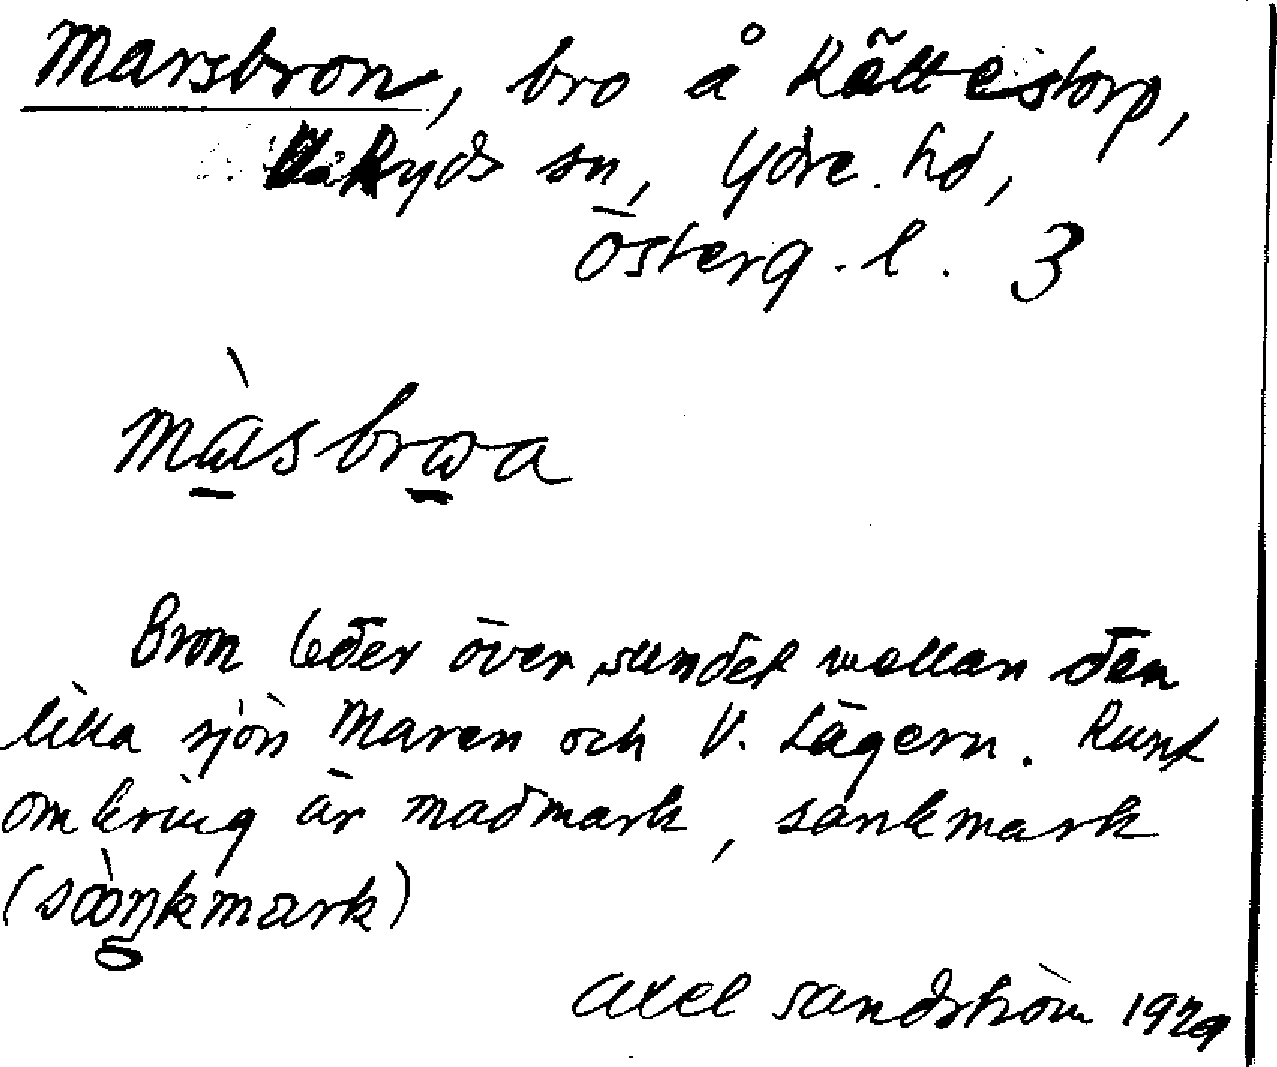 Marsbron, bro å Kättestorp,
Ryds sn, Ydre hd,
Österg. l. 3
màsbrωa
Bron leder över sundet mellan den
lilla sjön Maren och V. Lägern. Runt
omkring är madmark, sankmark
(sàŋkmark)
Axel Sandström 1929